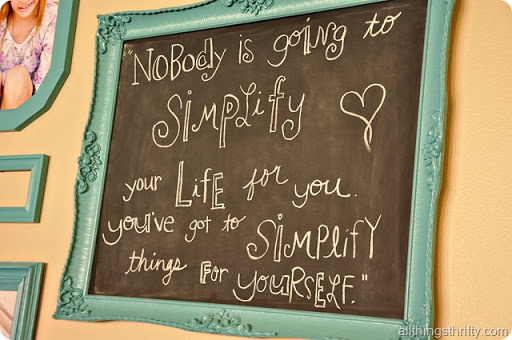 "NOBODY is going to
SIMPLIFY
your LIFE for you.
you've got to SIMPLIFY
things FOR YOURSELF."
allthingsthrifty.com